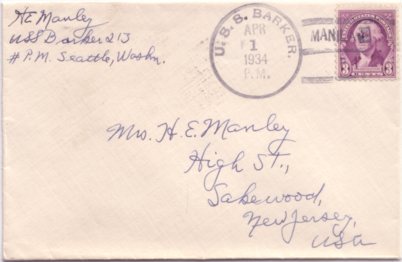 HE Manley
USS Barker 213
% P.M. Seattle, Washn.
U.S.S. BARKER.
APR
1
1934
P.M.
3 3
Mrs. H. E. Manley
High St.,
Lakewood,
New Jersey,
USA